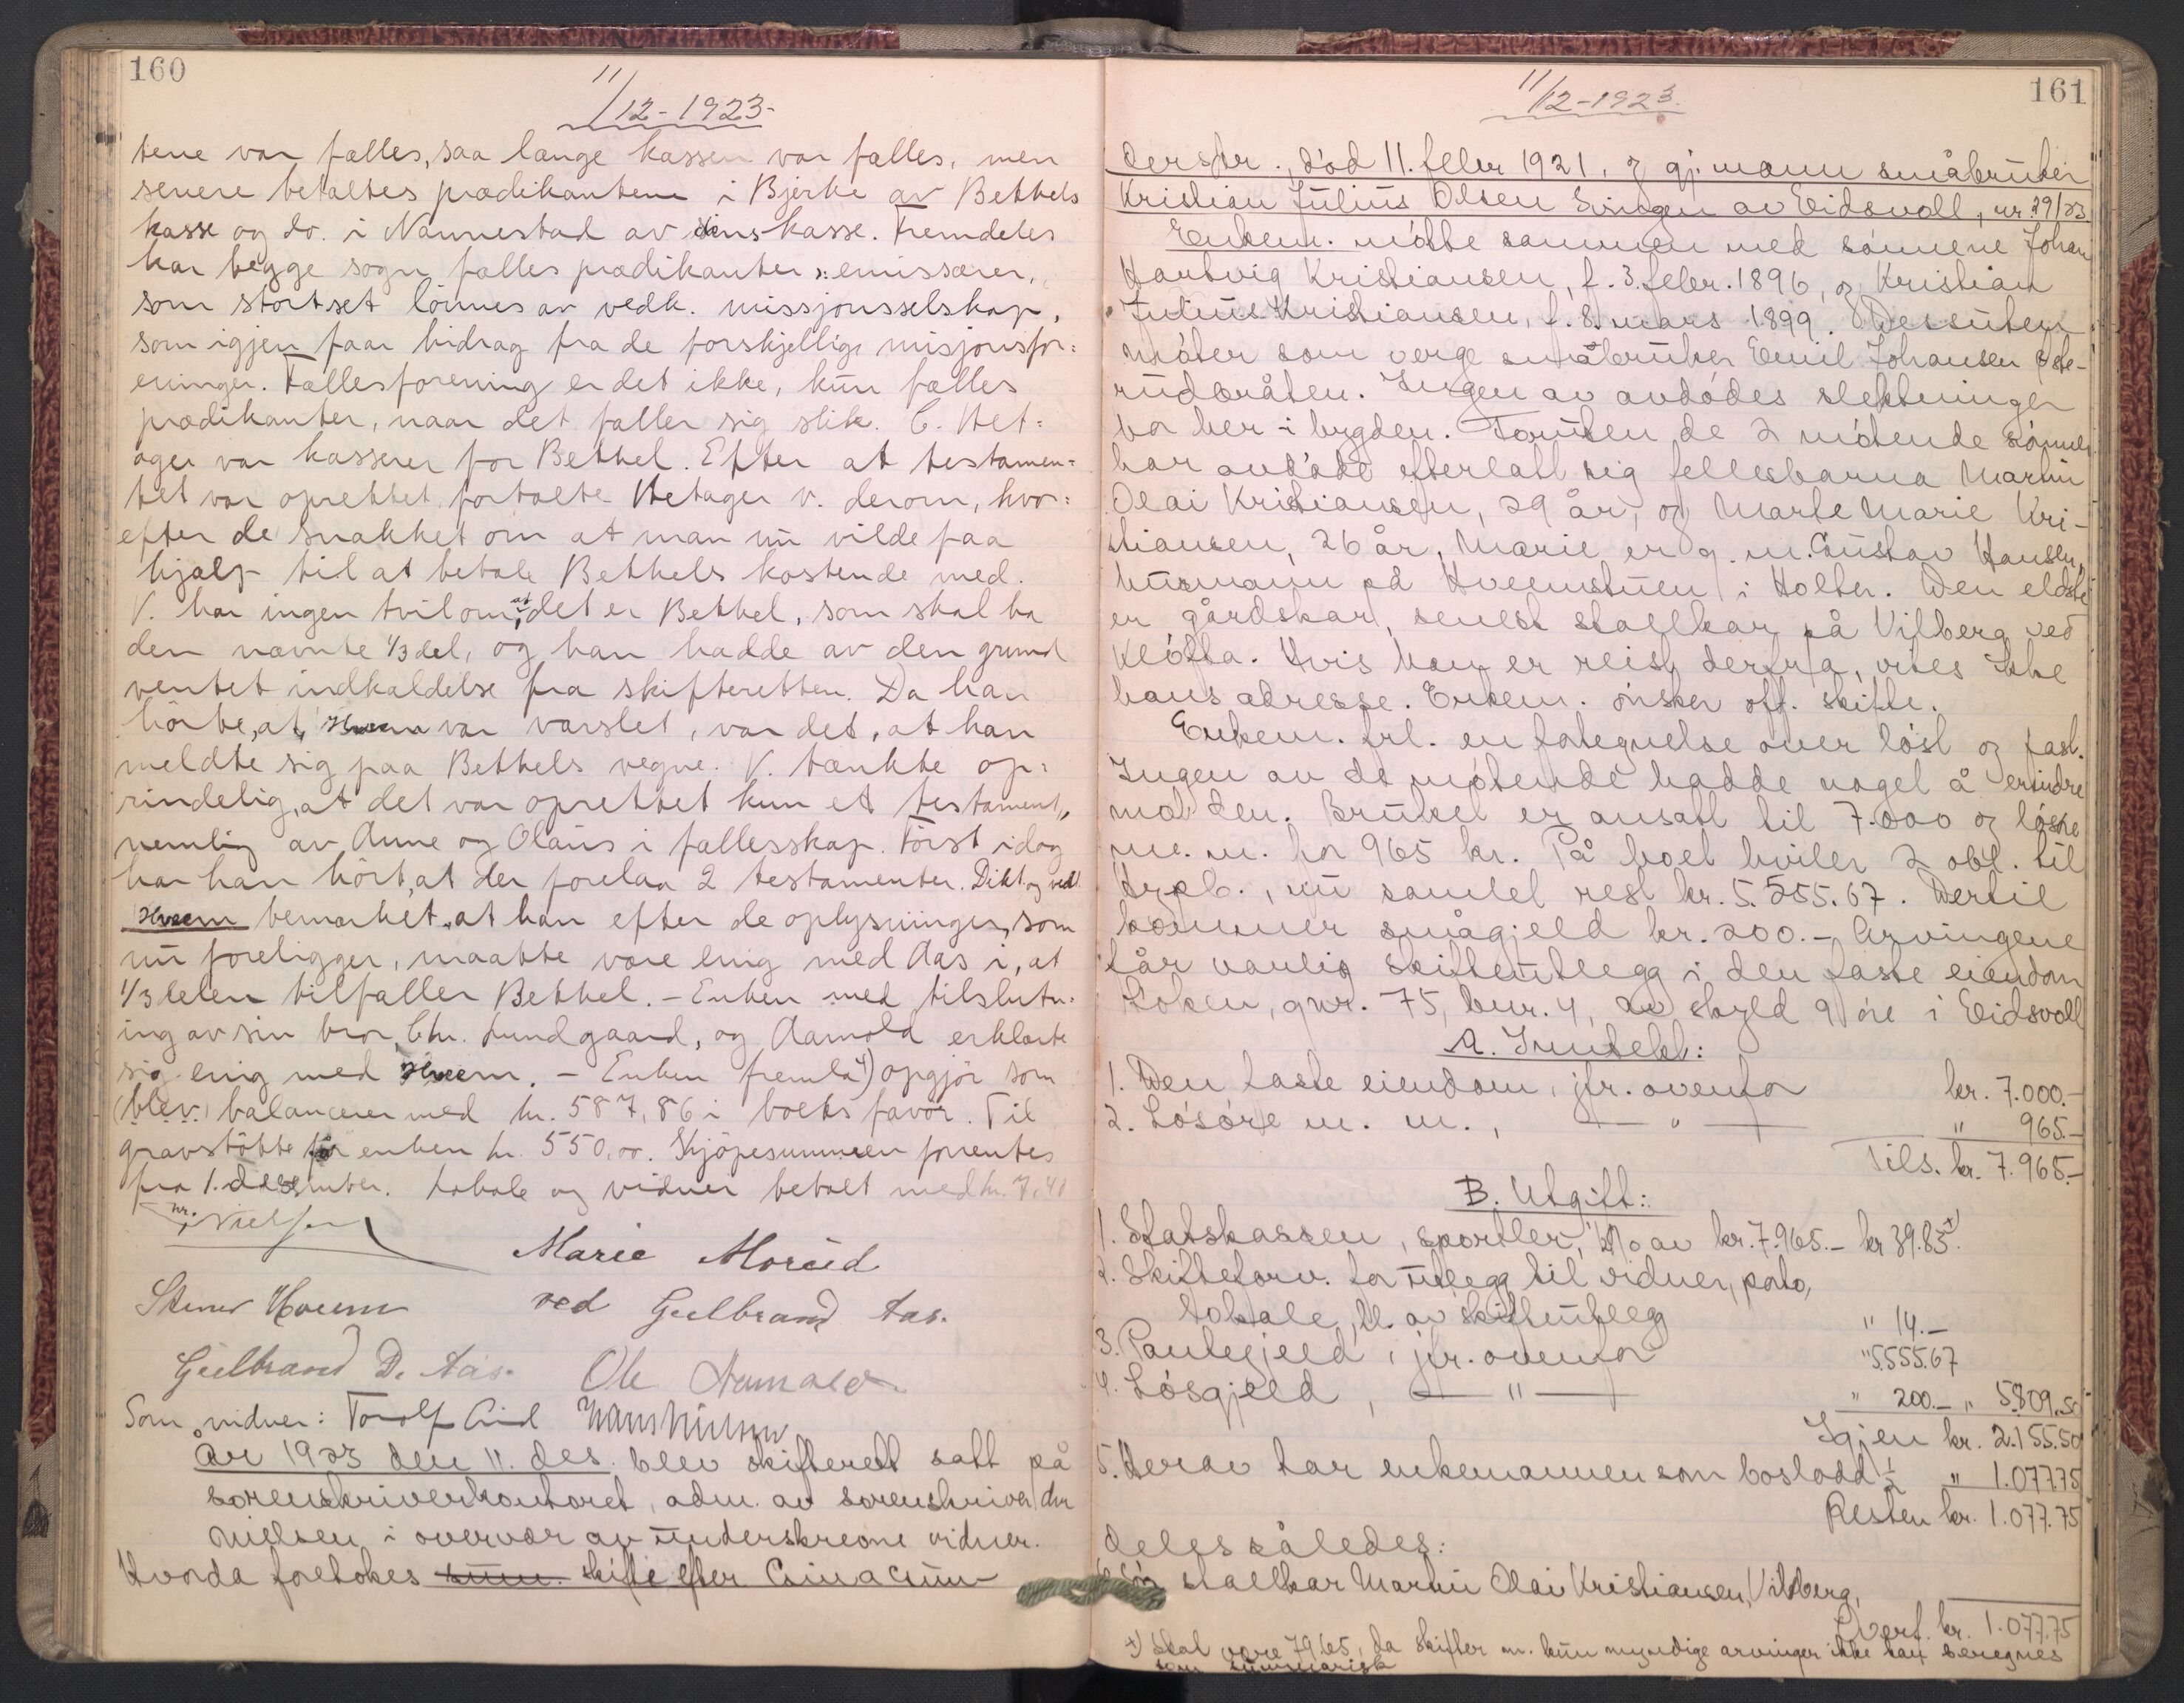 160
11/12-1923-
tene var fælles, saa længe kassen var fælles, men
senere betaltes prædikantene i Bjerke av Bethels
kasse og do. i Nannestad av dens kasse. Fremdeles
har begge sogn fælles prædikanter ɔ: emissærer,
som stort set lönnes av vedk. missjonsselskap,
som igjen faar bidrag fra de forskjellige misjonsfor=
eninger. Fællesforening er det ikke, kun fælles
prædikanter, naar det faller sig slik. C. Het=
ager var kasserer for Bethel. Efter at testamen=
tet var oprettet, fortalte Hetager v. derom, hvor=
efter de snakket om at man nu vilde faa
hjælp til at betale Bethels kostende med.
V. har ingen tvil om, at det er Bethel, som skal ha
den nævnte 1/3 del, og han hadde av den grund
ventet indkaldelse fra skifteretten. Da han
hörte, at Hveem var varslet, var det, at han
meldte sig paa Bethels vegne. V. tænkte op=
rindelig, at det var oprettet kun et testament,
nemlig av Anne og Olaus i fællesskap. Först idag
har han hört, at der forelaa 2 testamenter. Dikt. og vedt.
Hveem bemærket, at han efter de oplysninger, som
nu foreligger, maatte være enig med Aas i, at
1/3 delen tilfaller Bethel. - Enken med tilslutn=
ing av sin bror, Chr. Lundgaard, og Aamold erklærte
sig enig med Hveem. - Enken fremla opgjör som
(blev) balancerer med kr. 587,86 i boets favör. Til
gravstötte får enken kr. 550,00. Kjöpesummen forrentes
fra 1. desember. Lokale og vidner betalt med kr. 7,40
Nielsen
Marie Morud
Stener Hveem ved Gulbrand Aas.
Gulbrand D. Aas. Ole Aamold
Som vidner: Torolf Lind
År 1923 den 11. des. blev skifterett satt på
sorenskriverkontoret, adm. av sorenskriver
Nielsen i overvær av underskrevne vidner.
Hvorda foretokes skifte efter
161
11/12-1923.
Dersdr., död 11. febr 1921, g gj. mann småbruker
Kristian Julius Olsen Svingen av Eidsvoll, nr. 29/23
Enkem. mötte sammen med sönnene Johan
Hartvig Kristiansen, f. 3. febr. 1896, og Kristian
Julius Kristiansen, f. 8. mars 1899. Dessuten
möter som verge småbruker Emil Johansen
Ingen av avdödes slektninger
bor her i bygden. Foruten de 2 mötende sönner
har avdöde efterlatt sig fellesbarna Martin
Olai Kristiansen, 29 år, og Marte Marie Kri-
stiansen, 26 år, Marie er g. m. Gustav Hansen,
husmann på Hveemstuen i Holter. Den eldste
er gårdskar, senest stallkar på Vilberg ved
Klöfta. Hvis han er reist derfra, vites ikke
hans adresse. Enkem. önsker off. skifte.
Enkem. frl. en fategnelse over löst og fast.
Ingen av de mötende hadde noget å erindre
mot den. Bruket er ansatt til 7.000 og löske
m. m. for 965 kr. På boet hviler 2 obl. til
Hypb., nu samlet rest kr. 5.555.67. Dertil
kommer smågjeld kr. 200.- Arvingene
får vanlig skifteutlegg i den faste eiendom
Loken, gnr. 75, bnr. 4, av skyld 9 öre i Eidsvoll
A. Inntekt:
1. Den faste eiendom, jfr. ovenfor kr. 7.000.-
2. Lösöre m. m., — " — " 965.-
Tils. kr. 7.965.-
B. Utgift:
1. Statskassen, sportler, av kr. 7.965.- kr 39.83 x)
2. Skifteforv. for utlegg til vidner, porto,
lokale, tl. av skifteutlegg " 14.-
3. Pantegjeld, jfr. ovenfor " 5.555.67
4. Lösgjeld, — " — " 200.- " 5.809.50
Igjen kr. 2.155.50
5. Herav tar enkemannen som boslodd 1/2 " 1.077.75
Resten kr. 1.077.75
deles således:
stallkar Martin Olai Kristiansen, Vilberg,
Overf. kr. 1.077.75
x) Skal være 79.65, da skifter m. kun myndige arvinger ikke kan beregnes
som summarisk